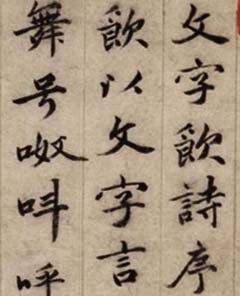 文字飲詩序
飲以文字言
舞号呶呌呼